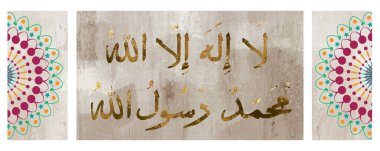 لَا إِلَهَ إِلَّا اللهُ
مُحَمَّدٌ رَسُولُ اللهُ